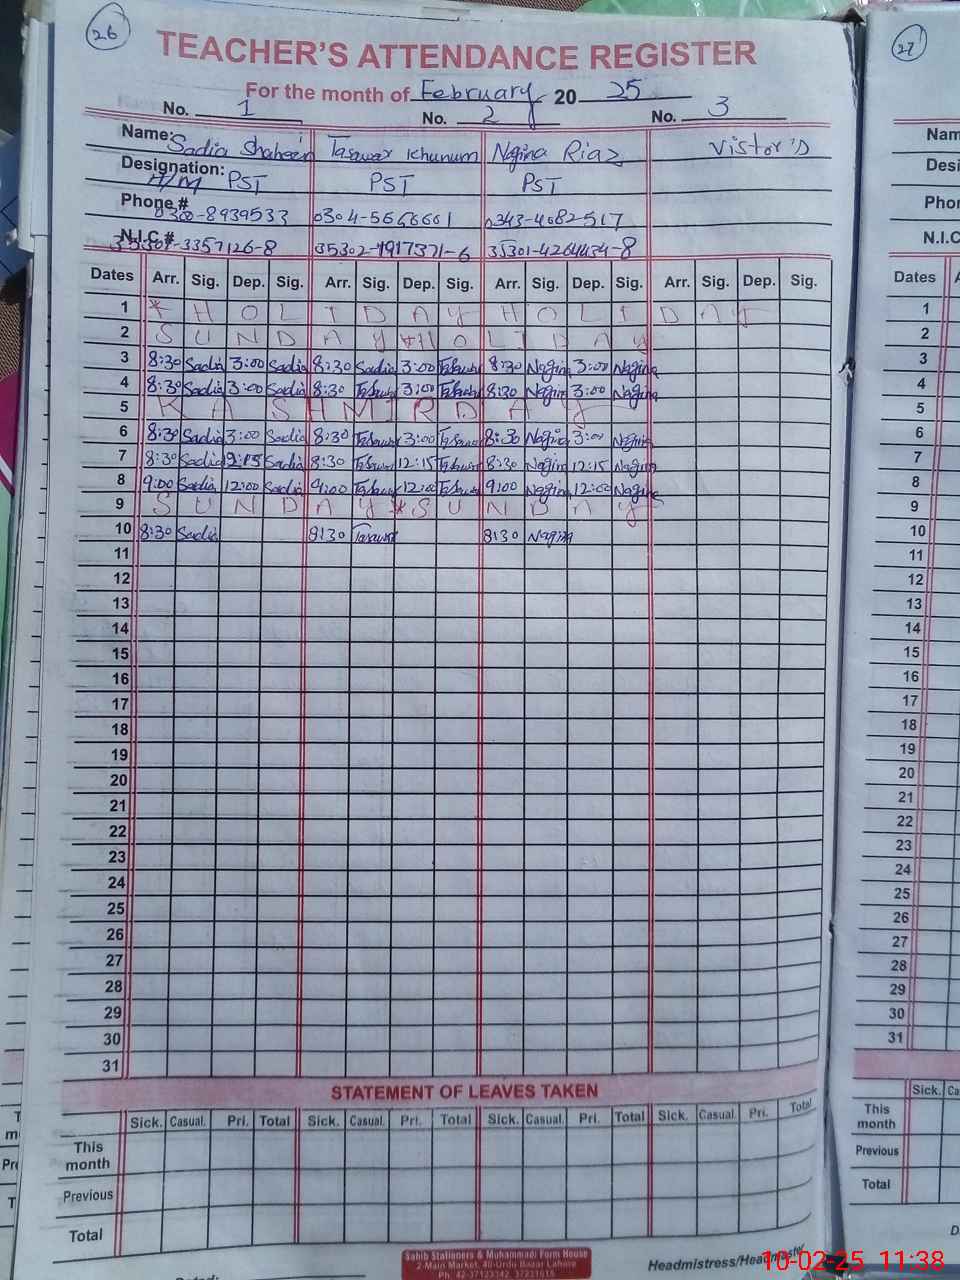 26
TEACHER'S ATTENDANCE REGISTER
For the month of February 2025
No. 1 No. 2 No. 3
Name: Sadia Shaheen Tasawar Khunum Nagina Riaz Vistor's
Designation: H/M PST PST PST
Phone # 0300-8939533 0304-5666661 0343-4082517
N.I.C.# 3357126-8 35302-1917371-6 35301-4264434-8
Dates Arr. Sig. Dep. Sig. Arr. Sig. Dep. Sig. Arr. Sig. Dep. Sig. Arr. Sig. Dep. Sig.
1 * HOLIDAY HOLIDAY
2 SUNDAY * HOLIDAY
3 8:30 Sadia 3:00 Sadia 8:30 Sadia 3:00 8:30 Nagina 3:00 Nagina
4 8:30 Sadia 3:00 Sadia 8:30 3:00 8:30 Nagina 3:00 Nagina
5 KASHMIR DAY
6 8:30 Sadia 3:00 Sadia 8:30 3:00 8:30 Nagina 3:00 Nagina
7 8:30 Sadia 12:15 Sadia 8:30 12:15 8:30 Nagina 12:15 Nagina
8 9:00 Sadia 12:00 Sadia 9:00 12:00 9:00 Nagina 12:00 Nagina
9 SUNDAY * SUNDAY
10 8:30 Sadia 8:30 Tasawar 8:30 Nagina
11
12
13
14
15
16
17
18
19
20
21
22
23
24
25
26
27
28
29
30
31
STATEMENT OF LEAVES TAKEN
Sick. Casual. Pri. Total Sick. Casual. Pri. Total Sick. Casual. Pri. Total Sick. Casual. Pri. Total
This month
Previous
Total
Sahib Stationers & Muhammadi Form House
2-Main Market, 40-Urdu Bazar Lahore
Ph: 42-37123342, 37231615
Dated: Headmistress/Headmaster
27
Nam
Desi
Pho
N.I.C
Dates A
1
2
3
4
5
6
7
8
9
10
11
12
13
14
15
16
17
18
19
20
21
22
23
24
25
26
27
28
29
30
31
Sick. Ca
This month
Previous
Total
10-02-25 11:38